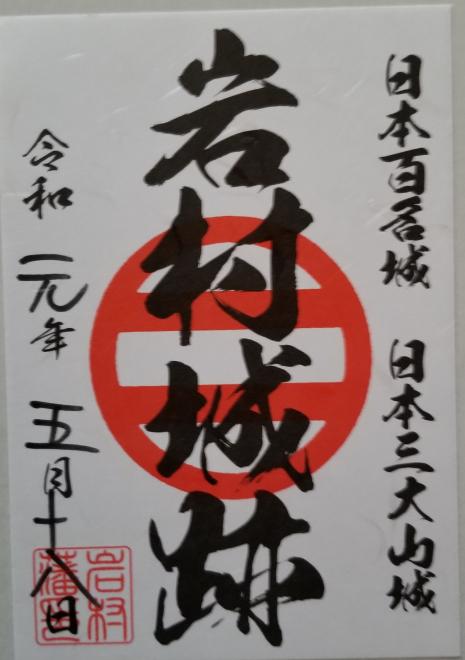 日本百名城 日本三大山城
岩村城跡
令和元年五月十八日
岩村